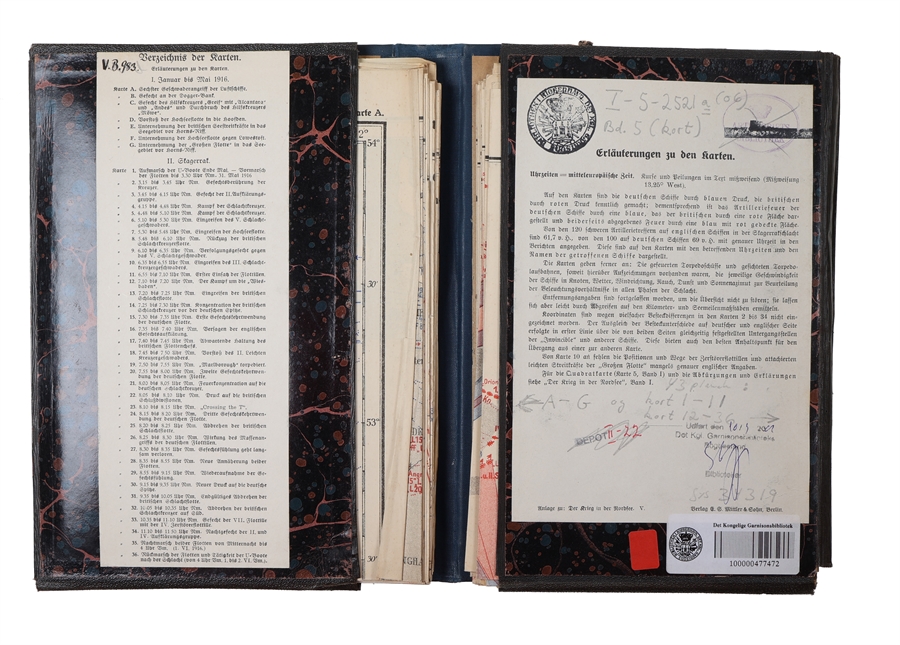 V.B.983
Verzeichnis der Karten.
Erläuterungen zu den Karten.
I. Januar bis Mai 1916.
Karte A. Sechster Geschwaderangriff der Luftschiffe.
B. Gefecht an der Dogger-Bank.
C. Gefecht des Hilfskreuzers „Greif“ mit „Alcantara“
und „Andes“ und Durchbruch des Hilfskreuzers
„Möwe“.
D. Vorstoß der Hochseeflotte in die Hoofden.
E. Unternehmung der britischen Seestreitkräfte in das
Seegebiet vor Horns-Riff.
F. Unternehmung der Hochseeflotte gegen Lowestoft.
G. Unternehmung der „Großen Flotte“ in das See-
gebiet vor Horns-Riff.
II. Skagerrak.
Karte 1. Aufmarsch der U-Boote Ende Mai. – Vormarsch
der Flotten bis 3.30 Uhr Nm. 31. Mai 1916
2. 3.15 bis 3.45 Uhr Nm. Gefechtsberührung der
Kreuzer.
3. 3.45 bis 4.15 Uhr Nm. Gefecht der II. Aufklärungs-
gruppe.
4. 4.15 bis 4.48 Uhr Nm. Kampf der Schlachtkreuzer.
5. 4.48 bis 5.10 Uhr Nm. Kampf der Schlachtkreuzer.
6. 5.10 bis 5.30 Uhr Nm. Eingreifen des V. Schlacht-
geschwaders.
7. 5.30 bis 5.48 Uhr Nm. Eingreifen der Hochseeflotte.
8. 5.48 bis 6.10 Uhr Nm. Rückzug der britischen
Schlachtkreuzerflotte.
9. 6.10 bis 6.35 Uhr Nm. Verfolgungsgefecht gegen
das V. Schlachtgeschwader.
10. 6.35 bis 6.55 Uhr Nm. Eingreifen des III. Schlacht-
kreuzergeschwaders.
11. 6.55 bis 7.10 Uhr Nm. Erster Einsatz der Flottillen.
12. 7.10 bis 7.20 Uhr Nm. Der Kampf um die „Wies-
baden“
13. 7.20 bis 7.25 Uhr Nm. Eingreifen der britischen
Schlachtflotte.
14. 7.25 bis 7.30 Uhr Nm. Konzentration der britischen
Schlachtkreuzer vor der deutschen Spitze.
15. 7.30 bis 7.35 Uhr Nm. Erste Gefechtskehrtwendung
der deutschen Flotte.
16. 7.35 bis 7.40 Uhr Nm. Versagen der englischen
Gefechtsaufklärung.
17. 7.40 bis 7.45 Uhr Nm. Abwartende Haltung des
britischen Flottenchefs.
18. 7.45 bis 7.50 Uhr Nm. Vorstoß des II. Leichten
Kreuzergeschwaders.
19. 7.50 bis 7.55 Uhr Nm. „Marlborough“ torpediert.
20. 7.55 bis 8.00 Uhr Nm. Zweite Gefechtskehrtwen-
dung der deutschen Flotte.
21. 8.00 bis 8.05 Uhr Nm. Feuerkonzentration auf die
deutschen Schlachtkreuzer.
22. 8.05 bis 8.10 Uhr Nm. Druck auf die britischen
Schlachtflotte.
23. 8.10 bis 8.15 Uhr Nm. „Crossing the T“.
24. 8.15 bis 8.20 Uhr Nm. Dritte Gefechtskehrtwen-
dung der deutschen Flotte.
25. 8.20 bis 8.25 Uhr Nm. Abdrehen der britischen
Schlachtflotte.
26. 8.25 bis 8.30 Uhr Nm. Wirkung des Massenan-
griffs der deutschen Flottillen.
27. 8.30 bis 8.35 Uhr Nm. Gefechtsfühlung geht lang-
sam verloren.
28. 8.35 bis 8.55 Uhr Nm. Neue Annäherung beider
Flotten.
29. 8.55 bis 9.15 Uhr Nm. Wiederaufnahme der Ge-
fechtsfühlung.
30. 9.15 bis 9.35 Uhr Nm. Neuer Druck auf die deutsche
Spitze.
31. 9.35 bis 10.05 Uhr Nm. Endgültiges Abdrehen der
britischen Schlachtflotte.
32. 10.05 bis 10.35 Uhr Nm. Abdrehen der britischen
Schlachtkreuzer auf Süd.
33. 10.35 bis 11.10 Uhr Nm. Gefecht der VII. Flottille
mit der IV. Zerstörerflottille.
34. 11.10 bis 11.50 Uhr Nm. Nachtgefecht der II. und
IV. Aufklärungsgruppe.
35. Nachtmarsch beider Flotten von Mitternacht bis
6 Uhr Nm. (1. VI. 1916.)
36. Rückmarsch der Flotten und Tätigkeit der U-Boote
nach der Schlacht (vom 6 Uhr Nm. 1. bis 2. VI. Nm.).
arte A.
2°
54°
53°
30'
30'
GHA
Orion
L20
I-5-2521a (06)
Bd. 5 (kort)
Erläuterungen zu den Karten.
Uhrzeiten = mitteleuropäische Zeit. Kurse und Peilungen im Text mißweisend (Mißweisung
13.20° West).
Auf den Karten sind die deutschen Schiffe durch blauen Druck, die britischen
durch roten Druck kenntlich gemacht; dementsprechend ist das Artilleriefeuer der
deutschen Schiffe durch eine blaue, das der britischen durch eine rote Fläche dar-
gestellt und beiderseits abgegebenes Feuer durch eine blau mit rot gedeckte Fläche.
Von den 120 schweren Artillerietreffern auf englischen Schiffen in der Skagerrakschlacht
sind 61,7 v. H., von den 100 auf deutschen Schiffen 69 v. H. mit genauer Uhrzeit in den
Berichten angegeben. Diese sind auf den Karten mit den betreffenden Uhrzeiten und den
Namen der getroffenen Schiffe dargestellt.
Die Karten geben ferner an: Die gefeuerten Torpedoschüsse und gesichteten Torpedo-
laufbahnen, soweit hierüber Aufzeichnungen vorhanden waren, die jeweilige Geschwindigkeit
der Schiffe in Knoten, Wetter, Windrichtung, Rauch, Dunst und Sonnenazimut zur Beurteilung
der Beleuchtungsverhältnisse in allen Phasen der Schlacht.
Entfernungsangaben sind fortgelassen worden, um die Übersicht nicht zu stören; sie lassen
sich aber leicht durch Abgreifen auf den Kilometer- und Seemeilenmaßstäben ermitteln.
Koordinaten sind wegen vielfacher Besteckdifferenzen in den Karten 2 bis 34 nicht ein-
gezeichnet worden. Der Ausgleich der Besteckunterschiede auf deutscher und englischer Seite
erfolgte in erster Linie über die von beiden Seiten gleichzeitig festgestellten Untergangsstellen
der „Invincible“ und anderer Schiffe. Diese bieten auch den besten Anhaltspunkt für den
Übergang aus einer zur anderen Karte.
Von Karte 10 an fehlen die Positionen und Wege der Zerstörerflottillen und attachierten
leichten Streitkräfte der „Großen Flotte“ mangels genauer englischer Angaben.
Für die Quadratkarte (Karte 5, Band I) und die Abkürzungen und Erklärungen
siehe „Der Krieg in der Nordsee“, Band I.
A-G og kort 1-11
kort 12-36
DEPOT II-22
Udført den
Det Kgl. Garnisonsbibliotek
Bibliotekar
Anlage zu: Der Krieg in der Nordsee. V.
Verlag E. S. Mittler & Sohn, Berlin.
Det Kongelige Garnisonsbibliotek
100000477472